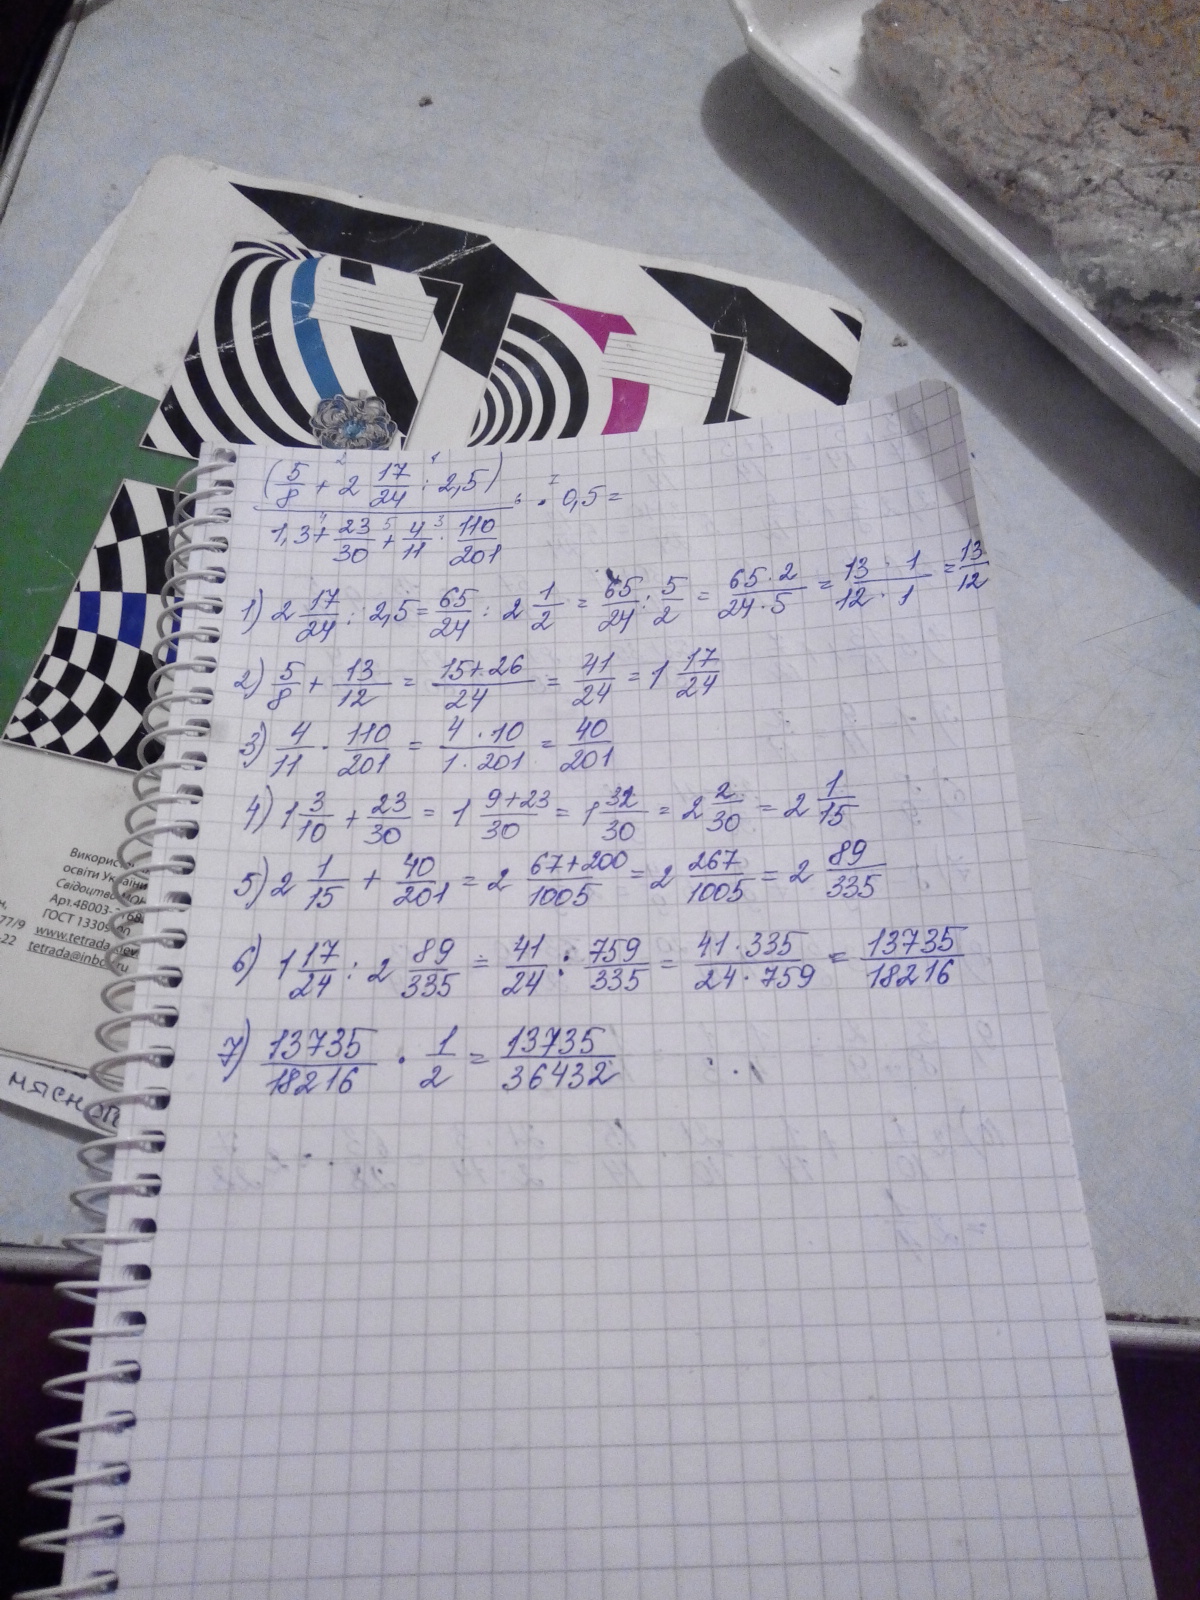 (5/8 + 2 17/24 : 2,5) / (1,3 + 23/30 + 4/11 · 110/201) · 0,5 =
1) 2 17/24 : 2,5 = 65/24 : 2 1/2 = 65/24 : 5/2 = 65·2/24·5 = 13·1/12·1 = 13/12
2) 5/8 + 13/12 = 15+26/24 = 41/24 = 1 17/24
3) 4/11 · 110/201 = 4·10/1·201 = 40/201
4) 1 3/10 + 23/30 = 1 9+23/30 = 1 32/30 = 2 2/30 = 2 1/15
5) 2 1/15 + 40/201 = 2 67+200/1005 = 2 267/1005 = 2 89/335
6) 1 17/24 : 2 89/335 = 41/24 : 759/335 = 41·335/24·759 = 13735/18216
7) 13735/18216 · 1/2 = 13735/36432
Викорис
освіти України
Свідоцтво
Арт.4В003-
ГОСТ 1330
www.tetrada.
tetrada@inbox.ru
77/9
-22